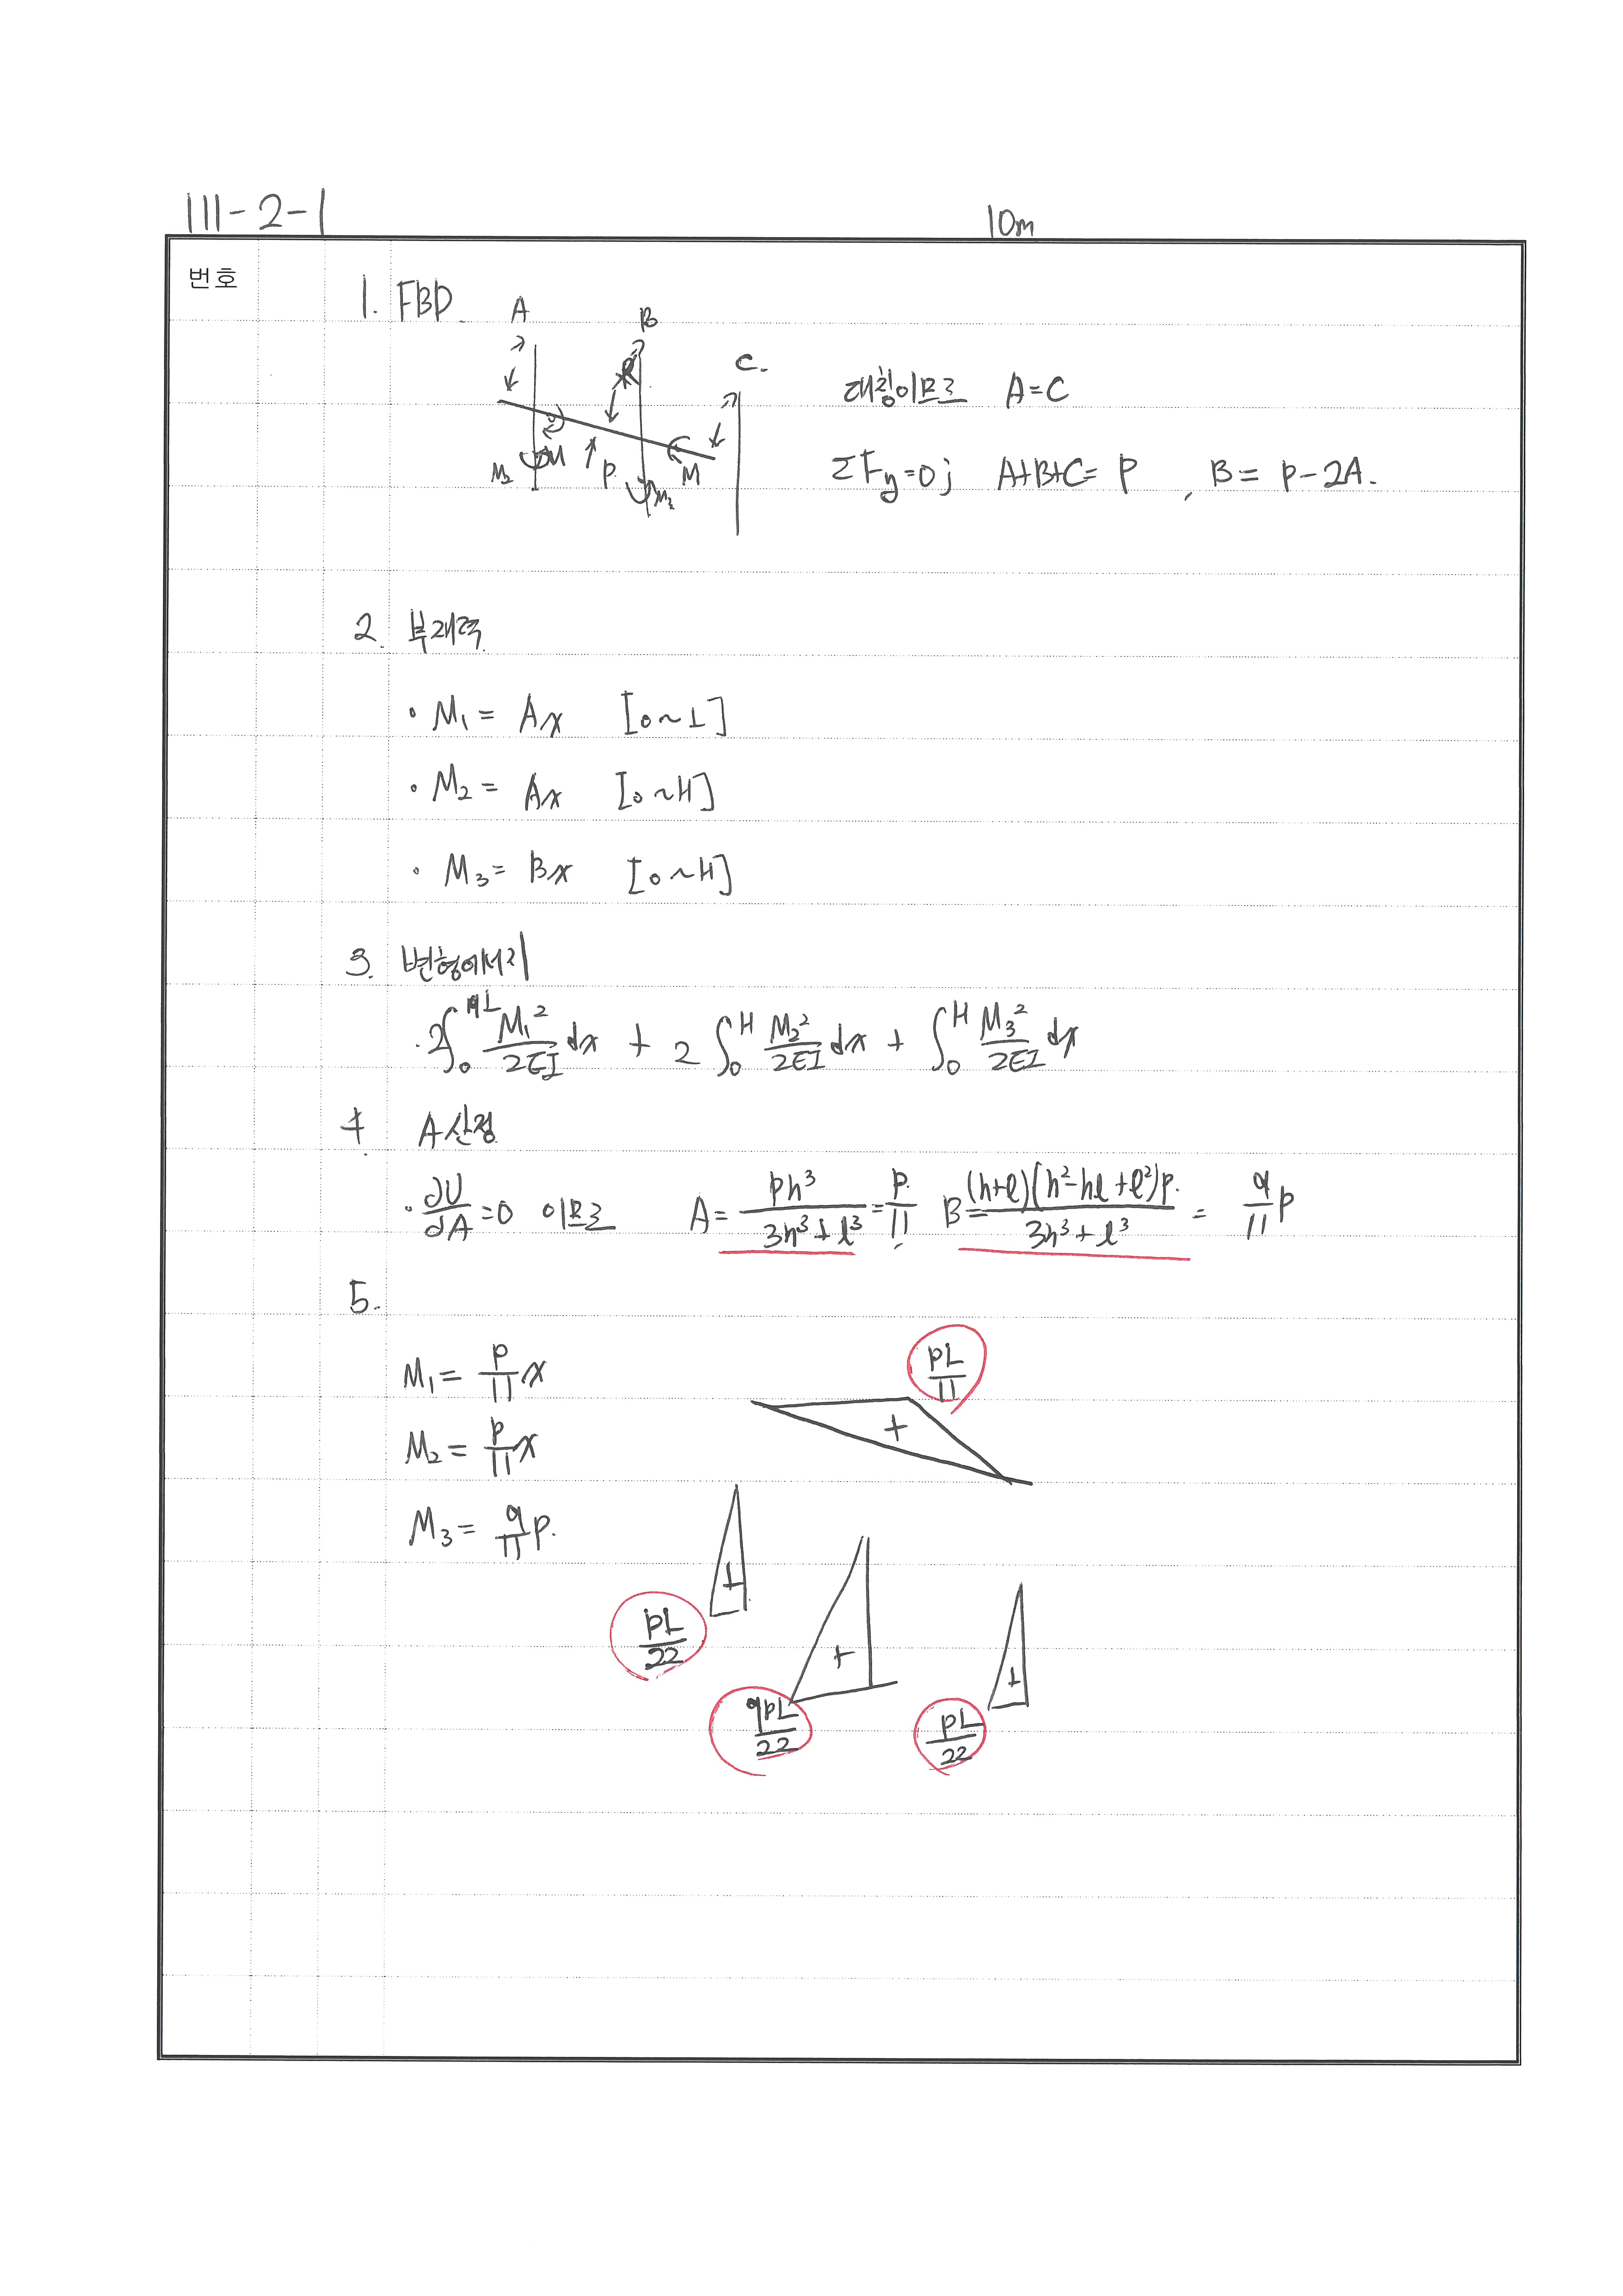 111-2-1
10m
번호
1. FBD.
A
B
C.
M₂ M P M M₃
대칭이므로 A=C
ΣFy=0; A+B+C= P , B= P-2A.
2. 부재력
· M₁= Ax [0~L]
· M₂= Ax [0~H]
· M₃= Bx [0~H]
3. 변형에너지
· 2∫₀ᴸ M₁²/2EI dx + 2 ∫₀ᴴ M₂²/2EI dx + ∫₀ᴴ M₃²/2EI dx
4. A산정
· ∂U/∂A=0 이므로 A= Ph³/(3h³+l³) = P/11. B= (h+l)(h²-hl+l²)P./(3h³+l³) = 9/11 P
5.
M₁= P/11 x
PL/11
+
M₂= P/11 x
M₃= 9/11 P.
+
PL/22
+
9PL/22
+
PL/22